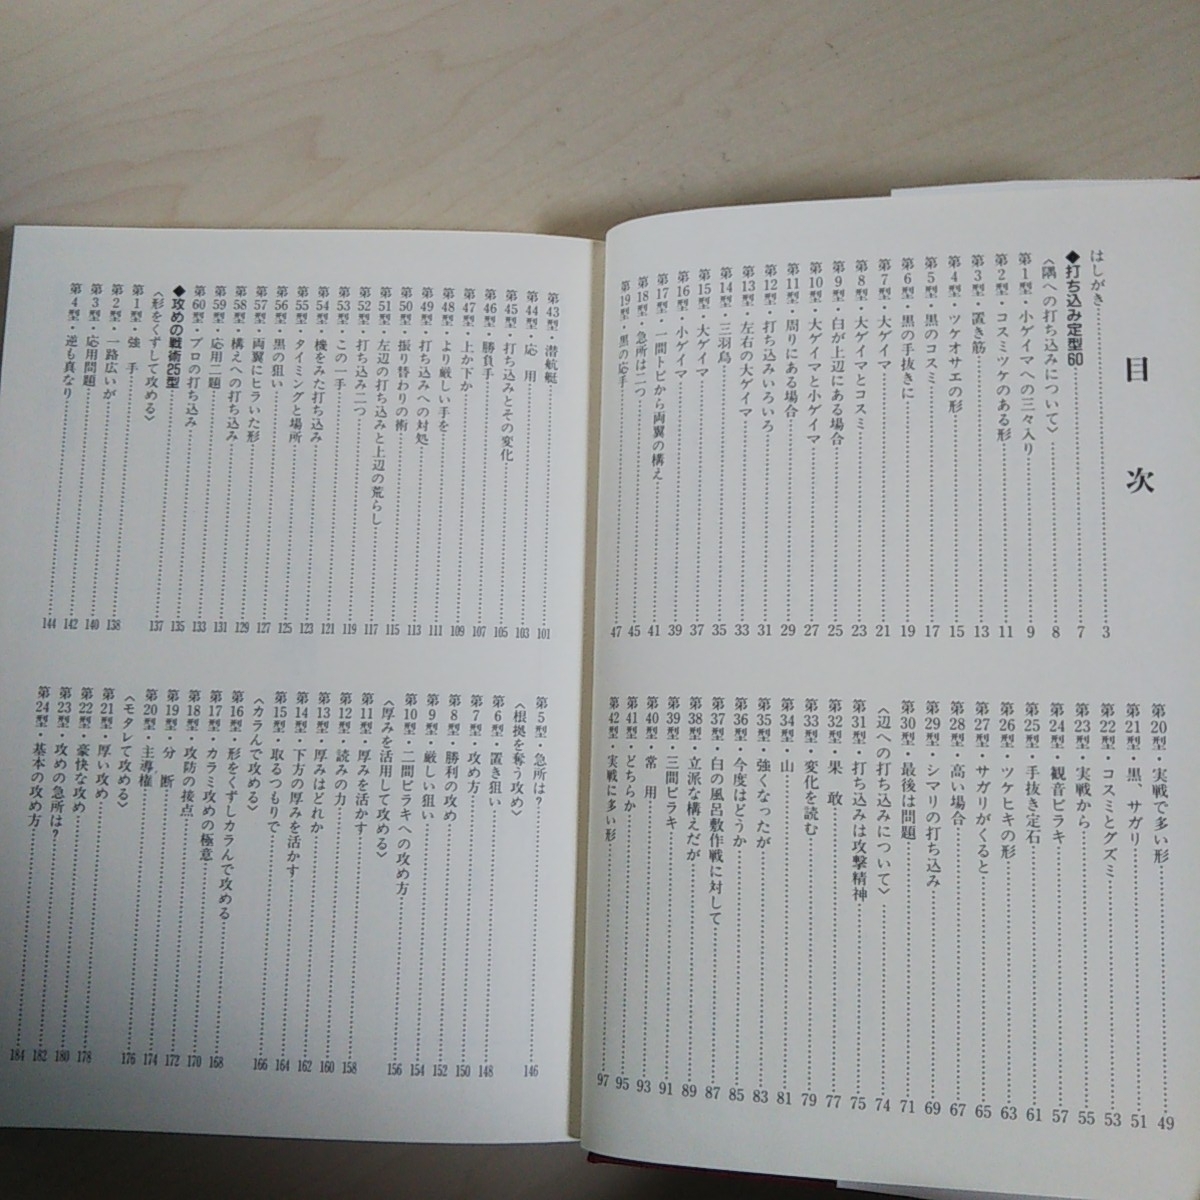 目次
はしがき 3
◆打ち込み定型60 7
〈隅への打ち込みについて〉 8
第1型・小ゲイマへの三々入り 9
第2型・コスミツケのある形 11
第3型・置き筋 13
第4型・ツケオサエの形 15
第5型・黒のコスミ 17
第6型・黒の手抜きに 19
第7型・大ゲイマ 21
第8型・大ゲイマとコスミ 23
第9型・白が上辺にある場合 25
第10型・大ゲイマと小ゲイマ 27
第11型・周りにある場合 29
第12型・打ち込みいろいろ 31
第13型・左右の大ゲイマ 33
第14型・三羽鳥 35
第15型・大ゲイマ 37
第16型・小ゲイマ 39
第17型・一間トビから両翼の構え 41
第18型・急所は二つ 45
第19型・黒の応手 47
第20型・実戦で多い形 49
第21型・黒、サガリ 51
第22型・コスミとグズミ 53
第23型・実戦から 55
第24型・観音ビラキ 57
第25型・手抜き定石 61
第26型・ツケヒキの形 63
第27型・サガリがくると 65
第28型・高い場合 67
第29型・シマリの打ち込み 69
第30型・最後は問題 71
〈辺への打ち込みについて〉 74
第31型・打ち込みは攻撃精神 75
第32型・果 敢 77
第33型・変化を読む 79
第34型・山 81
第35型・強くなったが 83
第36型・今度はどうか 85
第37型・白の風呂敷作戦に対して 87
第38型・立派な構えだが 89
第39型・三間ビラキ 91
第40型・常 用 93
第41型・どちらか 95
第42型・実戦に多い形 97
第43型・潜航艇 101
第44型・応 用 103
第45型・打ち込みとその変化 105
第46型・勝負手 107
第47型・上か下か 109
第48型・より厳しい手を 111
第49型・打ち込みへの対処 113
第50型・振り替わりの術 115
第51型・左辺の打ち込みと上辺の荒らし 117
第52型・打ち込み二つ 119
第53型・この一手 121
第54型・機をみた打ち込み 123
第55型・タイミングと場所 125
第56型・黒の狙い 127
第57型・両翼にヒラいた形 129
第58型・構えへの打ち込み 131
第59型・応用二題 133
第60型・プロの打ち込み 135
◆攻めの戦術25型
〈形をくずして攻める〉 137
第1型・強 手 138
第2型・一路広いが 140
第3型・応用問題 142
第4型・逆も真なり 144
第5型・急所は? 146
〈根拠を奪う攻め〉
第6型・置き狙い 148
第7型・攻め方 150
第8型・勝利の攻め 152
第9型・厳しい狙い 154
第10型・二間ビラキへの攻め方 156
〈厚みを活用して攻める〉
第11型・厚みを活かす 158
第12型・読みの力 160
第13型・厚みはどれか 162
第14型・下方の厚みを活かす 164
第15型・取るつもりで 166
〈カラんで攻める〉
第16型・形をくずしカラんで攻める 168
第17型・カラミ攻めの極意 170
第18型・攻防の接点 172
第19型・分 断 174
第20型・主導権 176
〈モタレて攻める〉
第21型・厚い攻め 178
第22型・豪快な攻め 180
第23型・攻めの急所は? 182
第24型・基本の攻め方 184